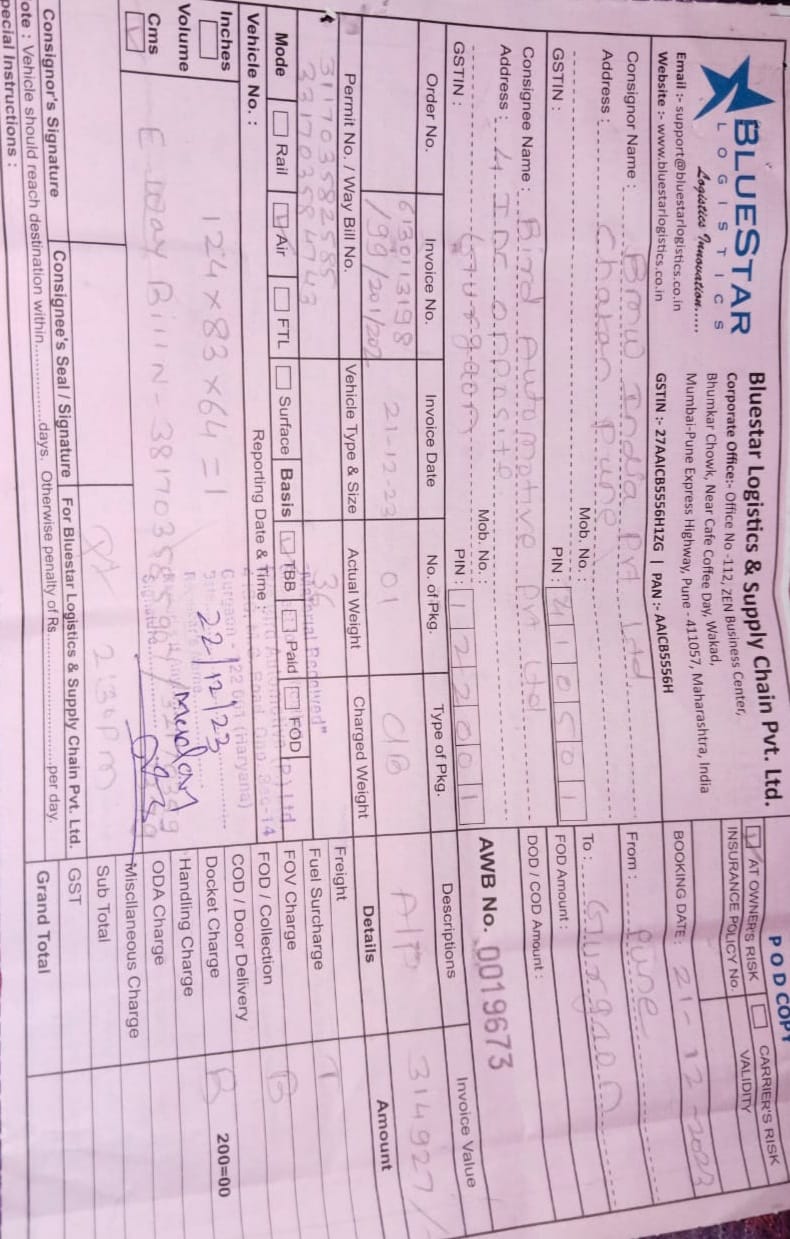 POD COPY
BLUESTAR
LOGISTICS
Logistics Innovation.....
Email :- support@bluestarlogistics.co.in
Website :- www.bluestarlogistics.co.in
Bluestar Logistics & Supply Chain Pvt. Ltd.
Corporate Office:- Office No -112, ZEN Business Center,
Bhumkar Chowk, Near Cafe Coffee Day, Wakad,
Mumbai-Pune Express Highway, Pune - 411057, Maharashtra, India
GSTIN :- 27AAICB5556H1ZG | PAN :- AAICB5556H
AT OWNER'S RISK CARRIER'S RISK
INSURANCE POLICY No. VALIDITY
BOOKING DATE : 21-12-2023
Consignor Name : BMW India Pvt Ltd.
Address : Chakan Pune
Mob. No. :
GSTIN : PIN : 410501
From : Pune
To : Gurgaon
FOD Amount :
DOD / COD Amount :
Consignee Name : Bird Automotive Pvt Ltd
Address : 4 IDC opposite
Mob. No. :
Gurgaon
GSTIN : PIN : 122001
AWB No. 0019673
Order No. Invoice No. Invoice Date No. of Pkg. Type of Pkg. Descriptions Invoice Value
6130113198
/99/201/202 21-12-23 01 CIB A/P 314927/-
Permit No. / Way Bill No. Vehicle Type & Size Actual Weight Charged Weight Details Amount
311703582585 36
331703584743
Mode Rail Air FTL Surface Basis TBB Paid FOD
Vehicle No. : Reporting Date & Time :
"Material Received"
Automotive (P.) Ltd.
Gurgaon - 122 001 (Haryana)
22/12/23
Signature
Inches
Volume
Cms
124 x 83 x 64 = 1
E way Bill N-
2:30 Pm
Freight
Fuel Surcharge
FOV Charge
FOD / Collection
COD / Door Delivery
Docket Charge 200=00
Handling Charge
ODA Charge
Miscllaneous Charge
Sub Total
GST
Grand Total
T
B
B
Consignor's Signature Consignee's Seal / Signature For Bluestar Logistics & Supply Chain Pvt. Ltd.
ote : Vehicle should reach destination within.................days. Otherwise penalty of Rs............................per day.
pecial Instructions :